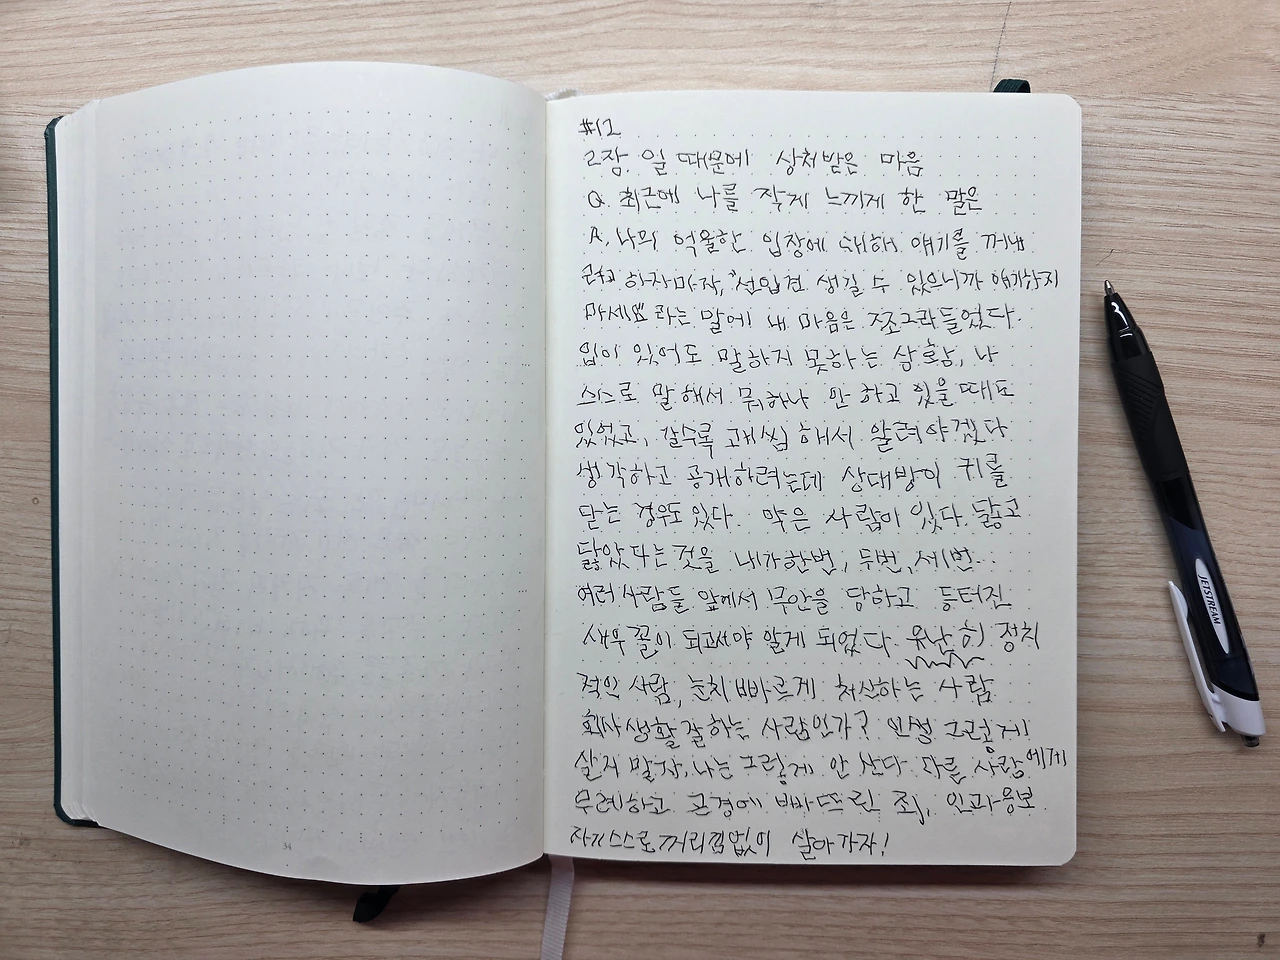 #12
2장. 일 때문에 상처받은 마음
Q. 최근에 나를 작게 느끼게 한 말은
A. 나의 억울한 입장에 대해 얘기를 꺼내
하자마자, "선입견 생길 수 있으니까 얘기하지
마세요" 라는 말에 내 마음은 쪼그라들었다.
입이 있어도 말하지 못하는 상황, 나
스스로 말해서 뭐하나 안 하고 있을 때도
있었고, 갈수록 고개씹 해서 알려야겠다
생각하고 공개하려는데 상대방이 귀를
닫는 경우도 있다. 약은 사람이 있다. 닳고
닳았다는 것을 내가 한번, 두번, 세번...
여러 사람들 앞에서 무안을 당하고 등터진
새우 꼴이 되고서야 알게 되었다. 유난히 정치
적인 사람, 눈치 빠르게 처신하는 사람
회사 생활 잘하는 사람인가? 인생 그렇게
살지 말자, 나는 그렇게 안 산다. 다른 사람에게
무례하고 곤경에 빠뜨린 죄, 인과응보
자기 스스로 꺼리낌없이 살아가자!
34
JETSTREAM